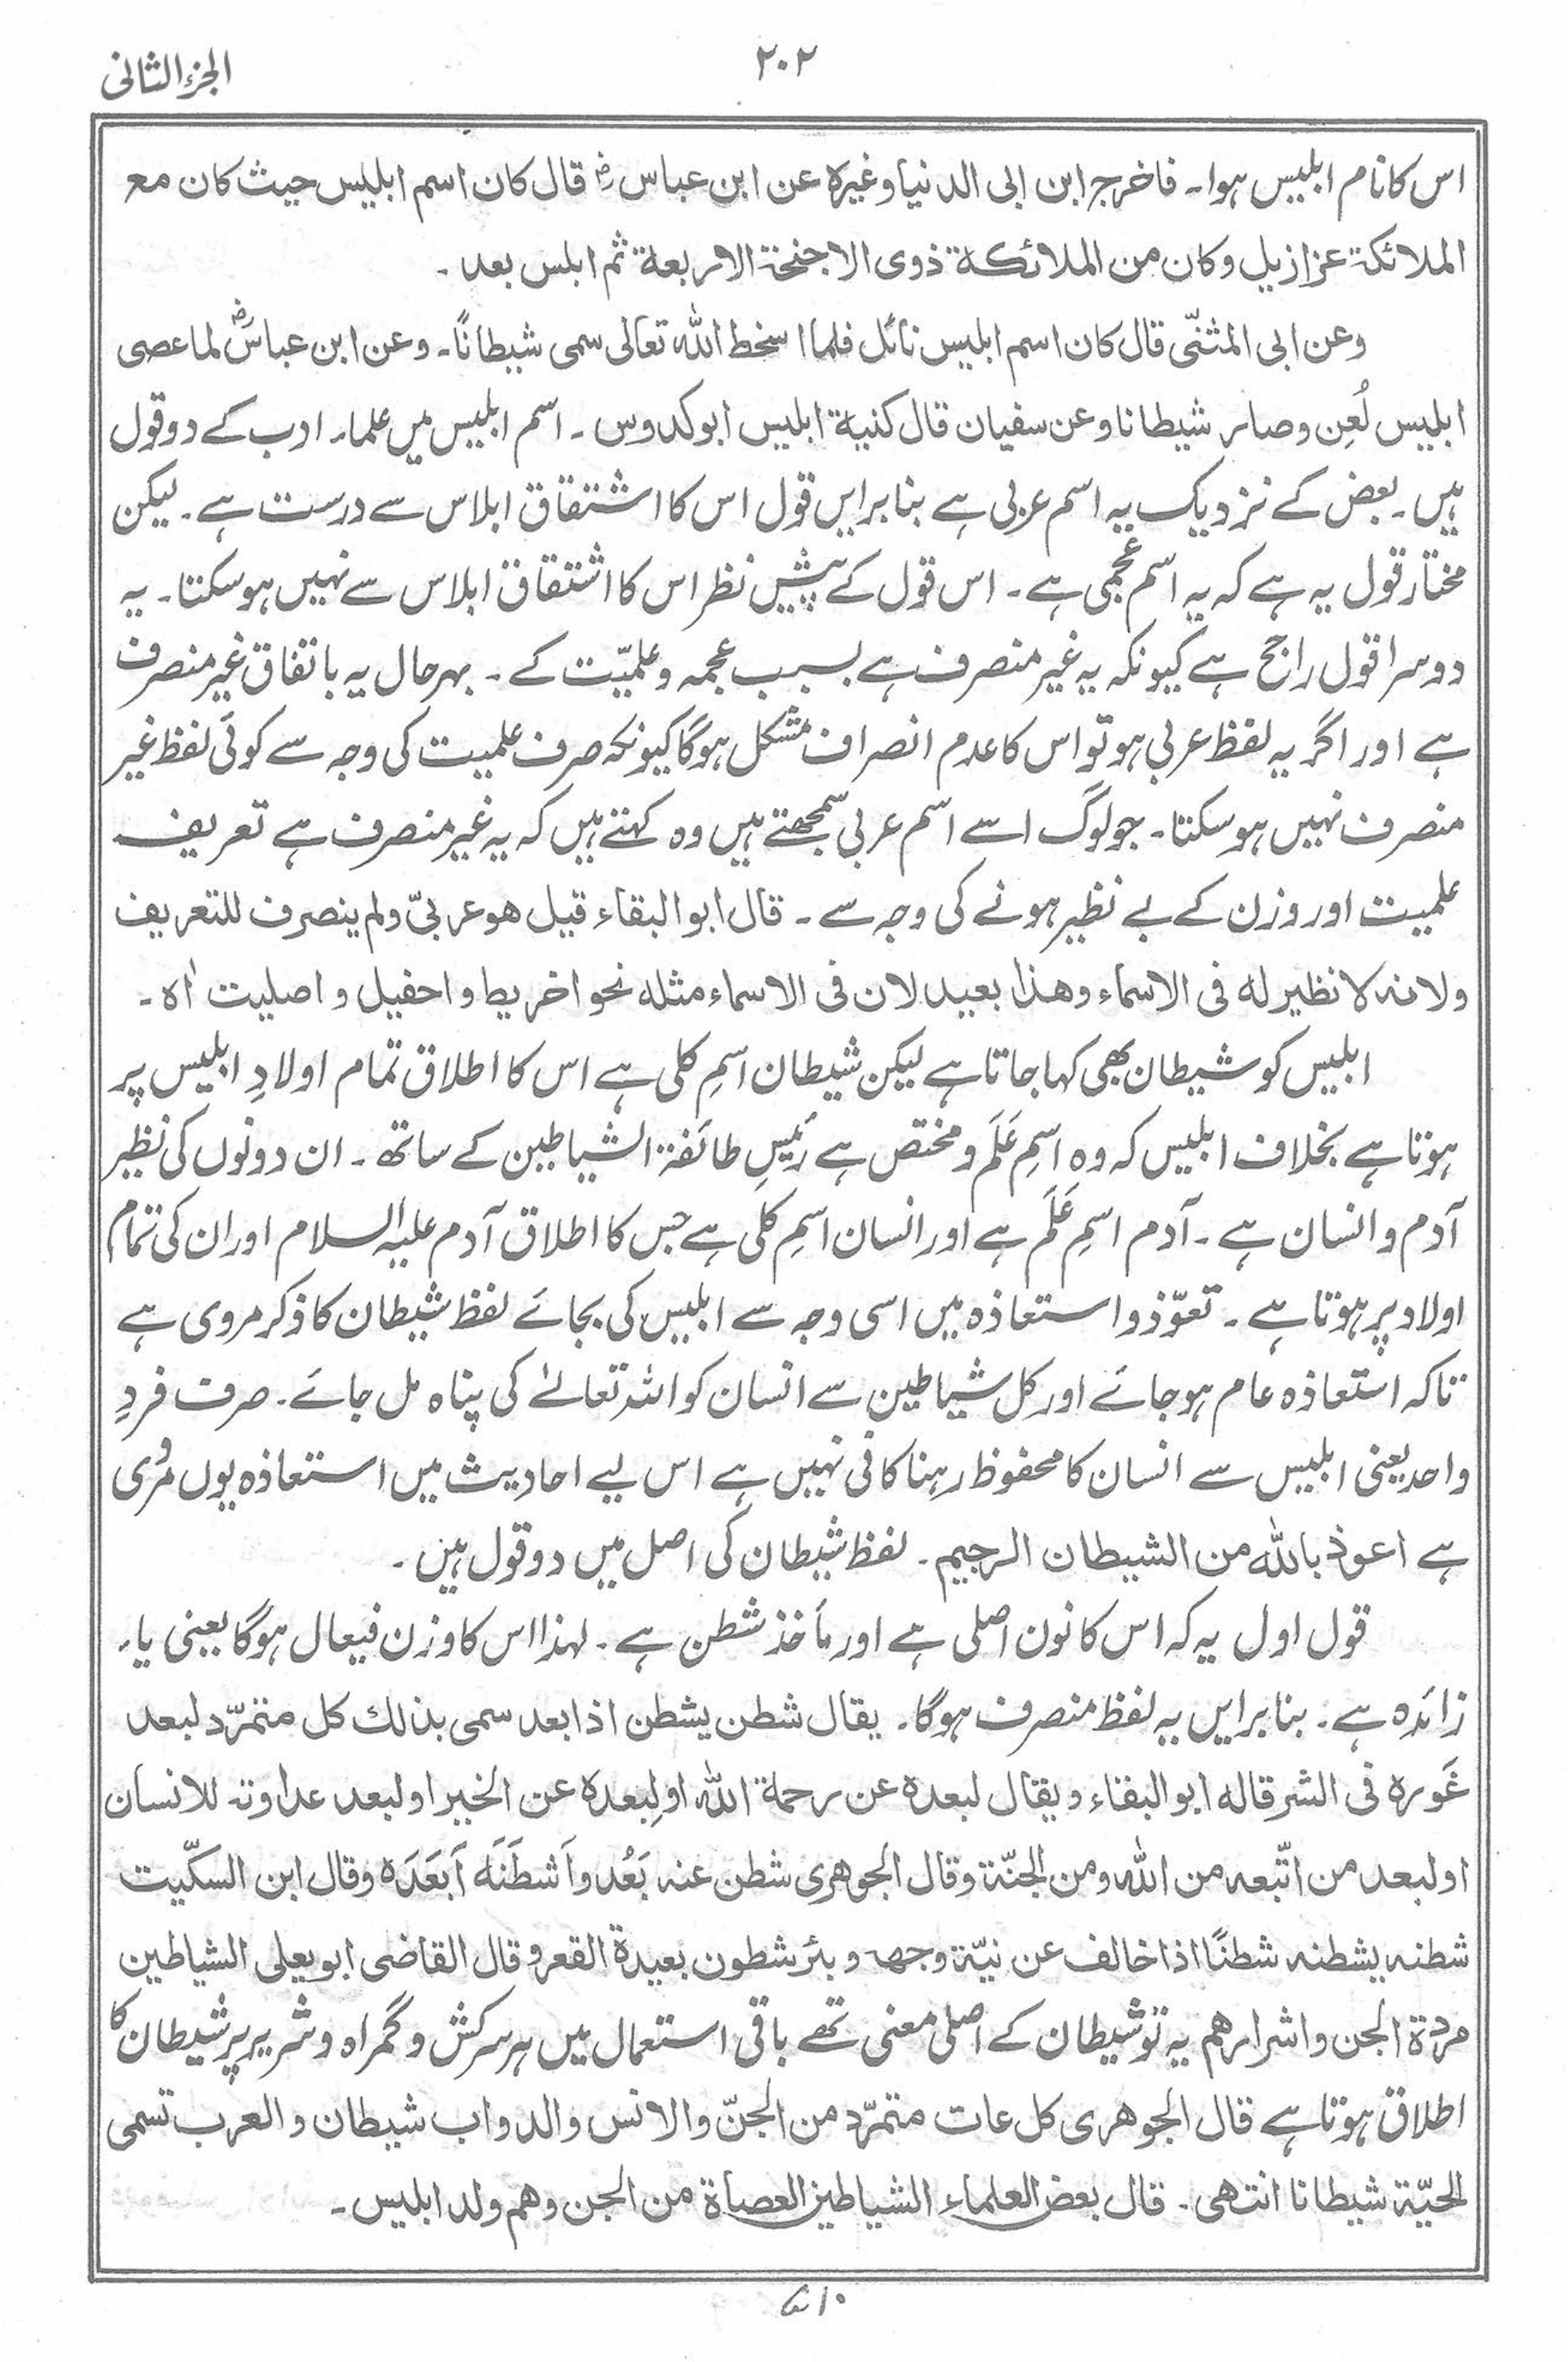 ۲۰۲
الجزء الثانی
اس کا نام ابلیس ہوا۔ فاخرج ابن ابی الدنیا وغیرہ عن ابن عباسؓ قال کان اسم ابلیس حیث کان مع
الملائکۃ عزازیل وکان من الملائکۃ ذوی الاجنحۃ الاربعۃ ثم ابلس بعد۔
وعن ابی المثنّی قال کان اسم ابلیس نائل فلما اسخط اللہ تعالی سمی شیطانًا۔ وعن ابن عباسؓ لما عصی
ابلیس لُعِن وصار شیطانا وعن سفیان قال کنیۃ ابلیس ابوکدوس۔ اسم ابلیس میں علماء ادب کے دو قول
ہیں۔ بعض کے نزدیک یہ اسم عربی ہے بنا بر ایں قول اس کا اشتقاق ابلاس سے درست ہے۔ لیکن
مختار قول یہ ہے کہ یہ اسم عجمی ہے۔ اس قول کے پیش نظر اس کا اشتقاق ابلاس سے نہیں ہو سکتا۔ یہ
دوسرا قول راجح ہے کیونکہ یہ غیر منصرف ہے بسبب عجمہ و علمیّت کے۔ بہرحال یہ باتفاق غیر منصرف
ہے اور اگر یہ لفظ عربی ہو تو اس کا عدم انصراف مشکل ہوگا کیونکہ صرف علمیت کی وجہ سے کوئی لفظ غیر
منصرف نہیں ہو سکتا۔ جو لوگ اسے اسم عربی سمجھتے ہیں وہ کہتے ہیں کہ یہ غیر منصرف ہے تعریف
علمیت اور وزن کے بے نظیر ہونے کی وجہ سے۔ قال ابو البقاء قیل ھو عربیّ ولم ینصرف للتعریف
ولانہ لا نظیر لہ فی الاسماء وھذا بعید لان فی الاسماء مثلہ نحو اخریط و احفیل و اصلیت اھ۔
ابلیس کو شیطان بھی کہا جاتا ہے لیکن شیطان اسمِ کلی ہے اس کا اطلاق تمام اولادِ ابلیس پر
ہوتا ہے بخلاف ابلیس کہ وہ اسمِ عَلَم و مختص ہے رئیسِ طائفۃ الشیاطین کے ساتھ۔ ان دونوں کی نظیر
آدم و انسان ہے۔ آدم اسمِ عَلَم ہے اور انسان اسمِ کلی ہے جس کا اطلاق آدم علیہ السلام اور ان کی تمام
اولاد پر ہوتا ہے۔ تعوّذ و استعاذہ میں اسی وجہ سے ابلیس کی بجائے لفظ شیطان کا ذکر مروی ہے
تاکہ استعاذہ عام ہو جائے اور کل شیاطین سے انسان کو اللہ تعالےٰ کی پناہ مل جائے۔ صرف فردِ
واحد یعنی ابلیس سے انسان کا محفوظ رہنا کافی نہیں ہے اس لیے احادیث میں استعاذہ یوں مروی
ہے اعوذ باللہ من الشیطان الرجیم۔ لفظ شیطان کی اصل میں دو قول ہیں۔
قول اول یہ کہ اس کا نون اصلی ہے اور مأخذ شطن ہے۔ لہذا اس کا وزن فیعال ہوگا یعنی یاء
زائدہ ہے۔ بنا بر ایں یہ لفظ منصرف ہوگا۔ یقال شطن یشطن اذا بعد سمی بذلك کل متمرّد لبعد
غَورہ فی الشر قالہ ابو البقاء ویقال لبعدہ عن رحمۃ اللہ اولِبعدہ عن الخیر او لبعد عداوتہ للانسان
او لبعد من اتّبعہ من اللہ ومن الجنّۃ وقال الجوھری شطن عنہ بَعُد واَشطَنَہ اَبعَدَہ وقال ابن السکّیت
شطنہ یشطنہ شطنًا اذا خالف عن نیّۃ وجھہ وبئر شطون بعیدۃ القعر وقال القاضی ابو یعلی الشیاطین
مردۃ الجن واشرارھم یہ تو شیطان کے اصلی معنی تھے باقی استعمال میں ہر سرکش و گمراہ و شریر پر شیطان کا
اطلاق ہوتا ہے قال الجوھری کل عات متمرّد من الجنّ والانس والدواب شیطان والعرب تسمی
الحیّۃ شیطانا انتھی۔ قال بعض العلماء الشیاطین العصاۃ من الجن وھم ولد ابلیس۔